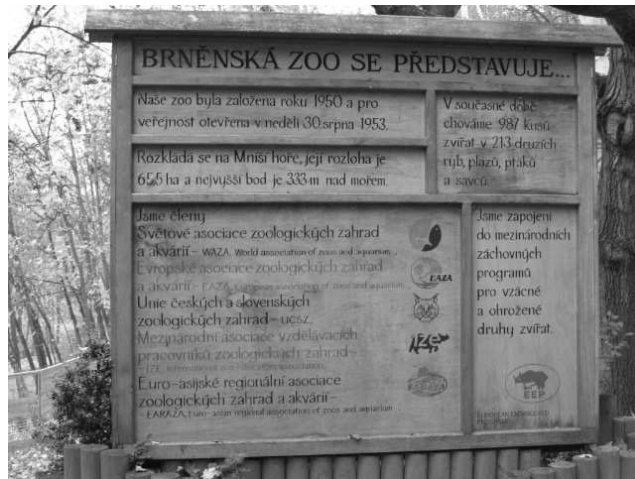 BRNĚNSKÁ ZOO SE PŘEDSTAVUJE...
Naše zoo byla založena roku 1950 a pro
veřejnost otevřena v neděli 30. srpna 1953.
Rozkládá se na Mniší hoře, její rozloha je
65,5 ha a nejvyšší bod je 333 m nad mořem.
V současné době
chováme 987 kusů
zvířat v 213 druzích
ryb, plazů, ptáků
a savců.
Jsme členy
Světové asociace zoologických zahrad
a akvárií - WAZA, World association of zoos and aquariums
Evropské asociace zoologických zahrad
a akvárií - EAZA, European association of zoos and aquaria
EAZA
Unie českých a slovenských
zoologických zahrad - UCSZ,
Mezinárodní asociace vzdělávacích
pracovníků zoologických zahrad -
- IZE, International zoo educators association
IZE
Euro-asijské regionální asociace
zoologických zahrad a akvárií -
- EARAZA, Euro-asian regional association of zoos and aquariums
Jsme zapojeni
do mezinárodních
záchovných
programů
pro vzácné
a ohrožené
druhy zvířat.
EEP
EUROPEAN ENDANGERED